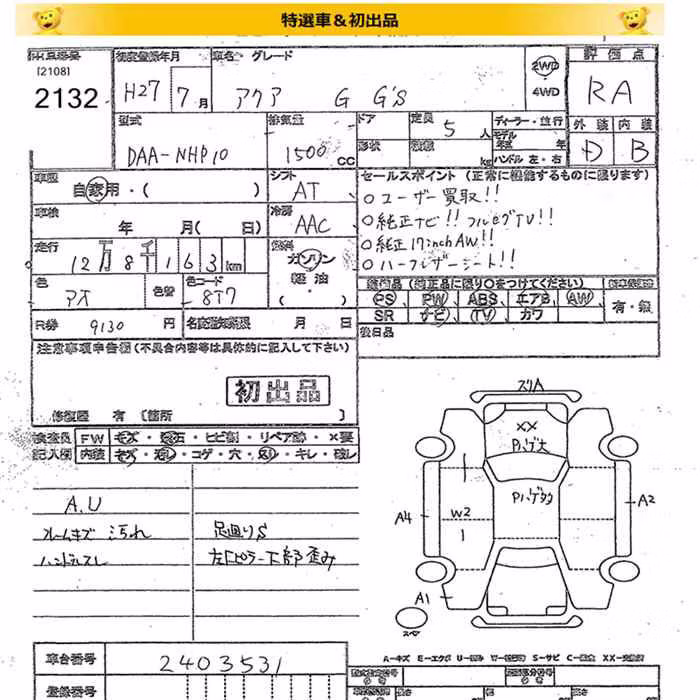 特選車＆初出品
(2108)
2132
初度登録年月
H27 7月
車名・グレード
アクア G G'S
2WD
4WD
評価点
RA
型式
DAA-NHP10
排気量
1500 CC
ドア
形状
定員 5 人
積載 kg
ディーラー・並行
モデル年式 年
ハンドル 左・右
外装 内装
D B
車歴
自家用・( )
シフト
AT
セールスポイント (正常に機能するものに限ります)
○ユーザー買取!!
○純正ナビ!!フルセグTV!!
○純正17inchAW!!
○ハーフレザーシート!!
車検
年 月( 日)
冷房
AAC
走行
12万8千163km
燃料
ガソリン
軽油
( )
色
アオ
色替
色コード
8T7
装備品 (純正品に限り○をつけてください)
PS PW ABS エアB AW
SR ナビ TV カワ
有・無
R券 9130 円
名変期限 月 日
後日品
注意事項申告欄 (不具合内容等は具体的に記入して下さい)
初出品
修復歴 有 [箇所 ]
検査員
記入欄
FW キズ・飛石・ヒビ割・リペア跡・×要
内装 キズ・汚れ・コゲ・穴・スリ・キレ・破レ
A.U
フレームキズ 汚れ
足廻りS
ハンドルスレ
左Cピラー下部歪み
スリA
XX
Pハゲ大
Pハゲ多数
W2
A4
A2
A1
スペア
A-キズ E-エクボ U-凹み W-補修跡 S-サビ C-腐食 XX-交換済
車台番号
2403531
登録番号